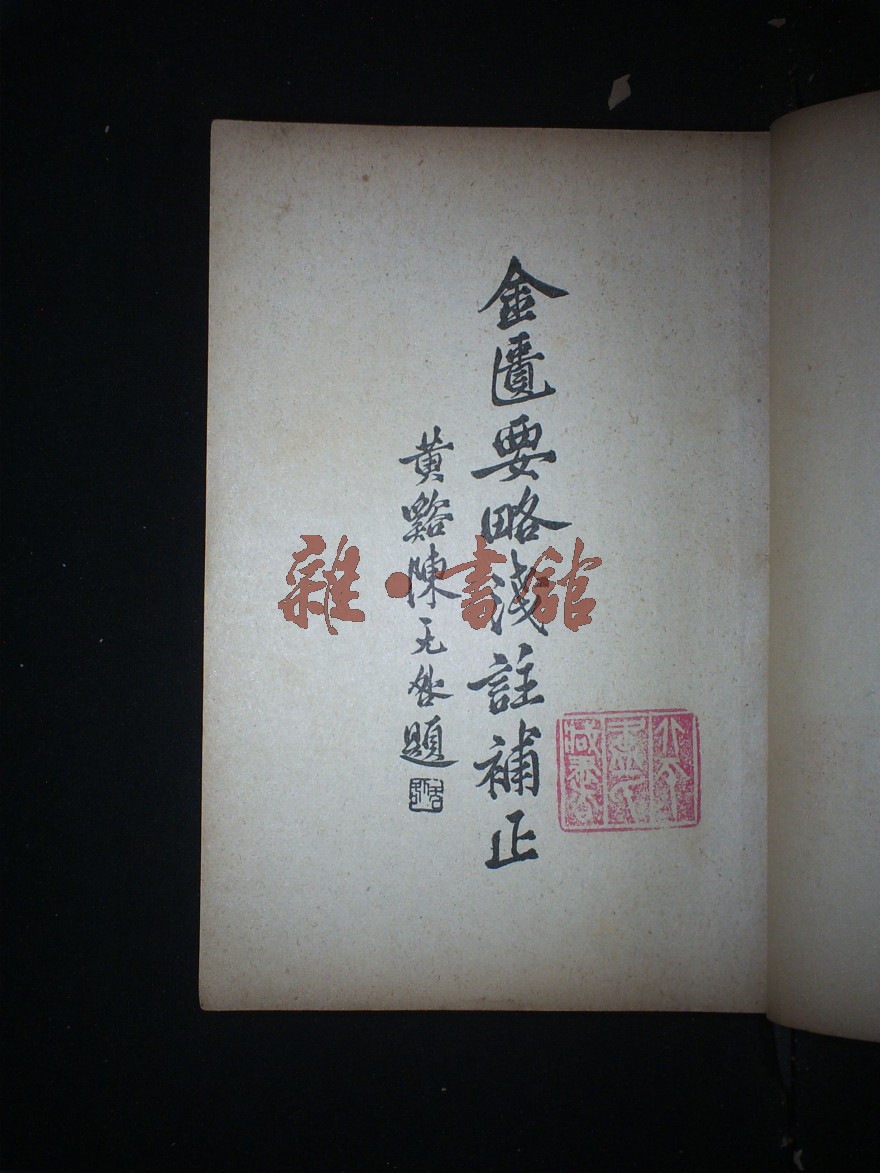 金匱要略淺註補正
黄谿陳无咎題
雜·書館